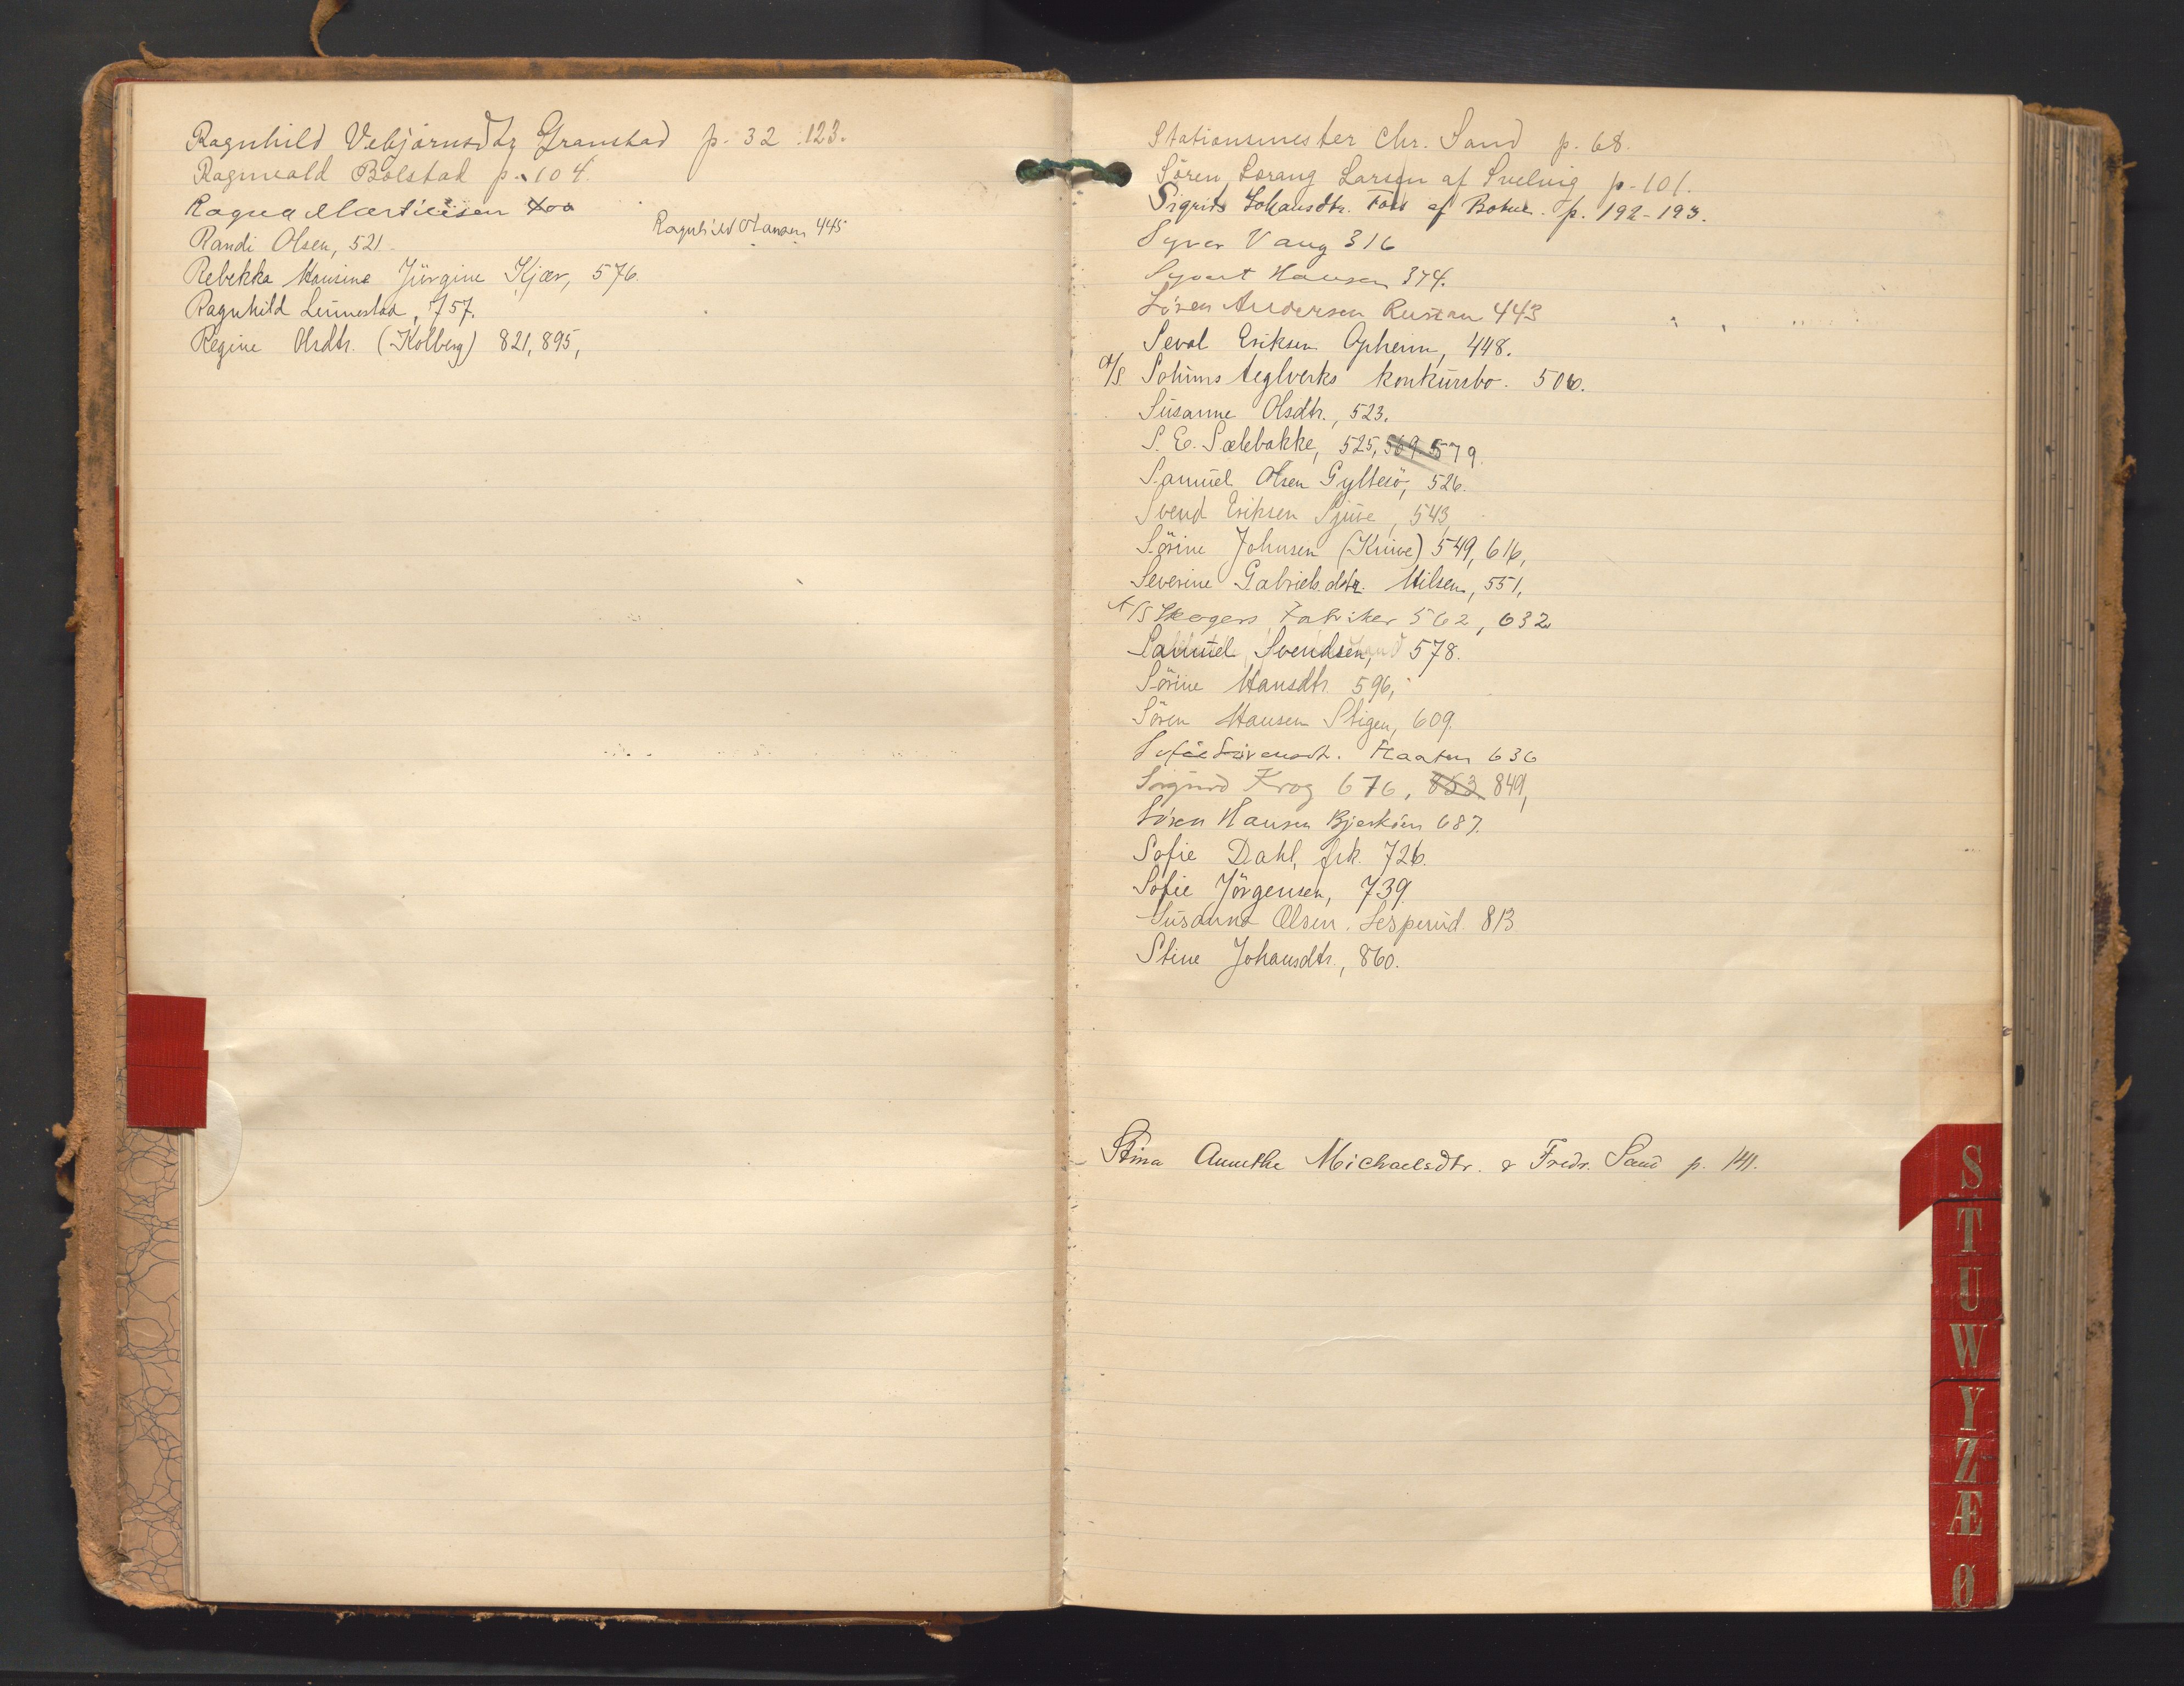 Ragnhild Vebjørnsdtr Granstad p. 32. 123.
Ragnvald Bølstad p. 104.
Ragna Martinisen 400
Ragnhild Hansen 445
Randi Olsen, 521.
Rebekka Hansine Jürgine Kjær, 576.
Ragnhild Linnestad, 757.
Regine Olsdtr. (Kolberg) 821, 895,
Stationsmester Chr. Sand p. 68.
Sören Lorang Larsen af Svelvig p. 101.
Sigrid Johansdtr. Foss af Botne. p. 192-193.
Syver Vaug 316
Syvert Hansen 374.
Sören Andersen Rustan 443
Seval Eriksen Opheim, 448.
A/S. Solums teglverks konkursbo. 506.
Susanne Olsdtr., 523.
S. E. Sælebakke, 525, 569. 579.
Samuel Olsen Gyltesö, 526.
Svend Eriksen Sjuve, 543,
Sörine Johnsen (Knive) 549, 616,
Severine Gabrielsdtr. Nilsen, 551,
A/S Skogers Fabriker 562, 632
Samuel Svendsen, 578.
Sörine Hansdtr. 596,
Sören Hansen Stigen, 609.
Sofie Sörensdt. Haaten 636
Sigurd Krog 676, 853 849,
Sören Hansen Bjerköen 687.
Sofie Dahl, frk. 726.
Sofie Jörgensen, 739.
Susanna Olsen. Jesperud. 813
Stine Johansdtr., 860.
Stina Annethe Michaelsdtr. & Fredr. Sand p. 141.
S
T
U
W
Y
Z
Æ
Ø